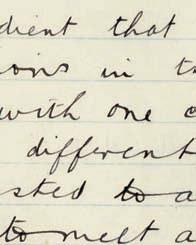 dient that
ions in t
with one c
different
sted to a
to melt a